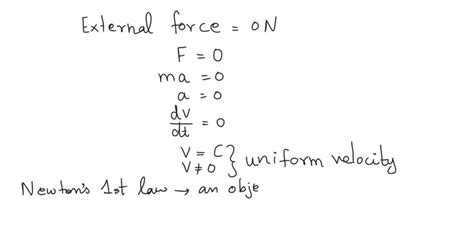 External force = 0N
F = 0
ma = 0
a = 0
dv/dt = 0
V = C
V ≠ 0 } uniform velocity
Newton's 1st law → an obje